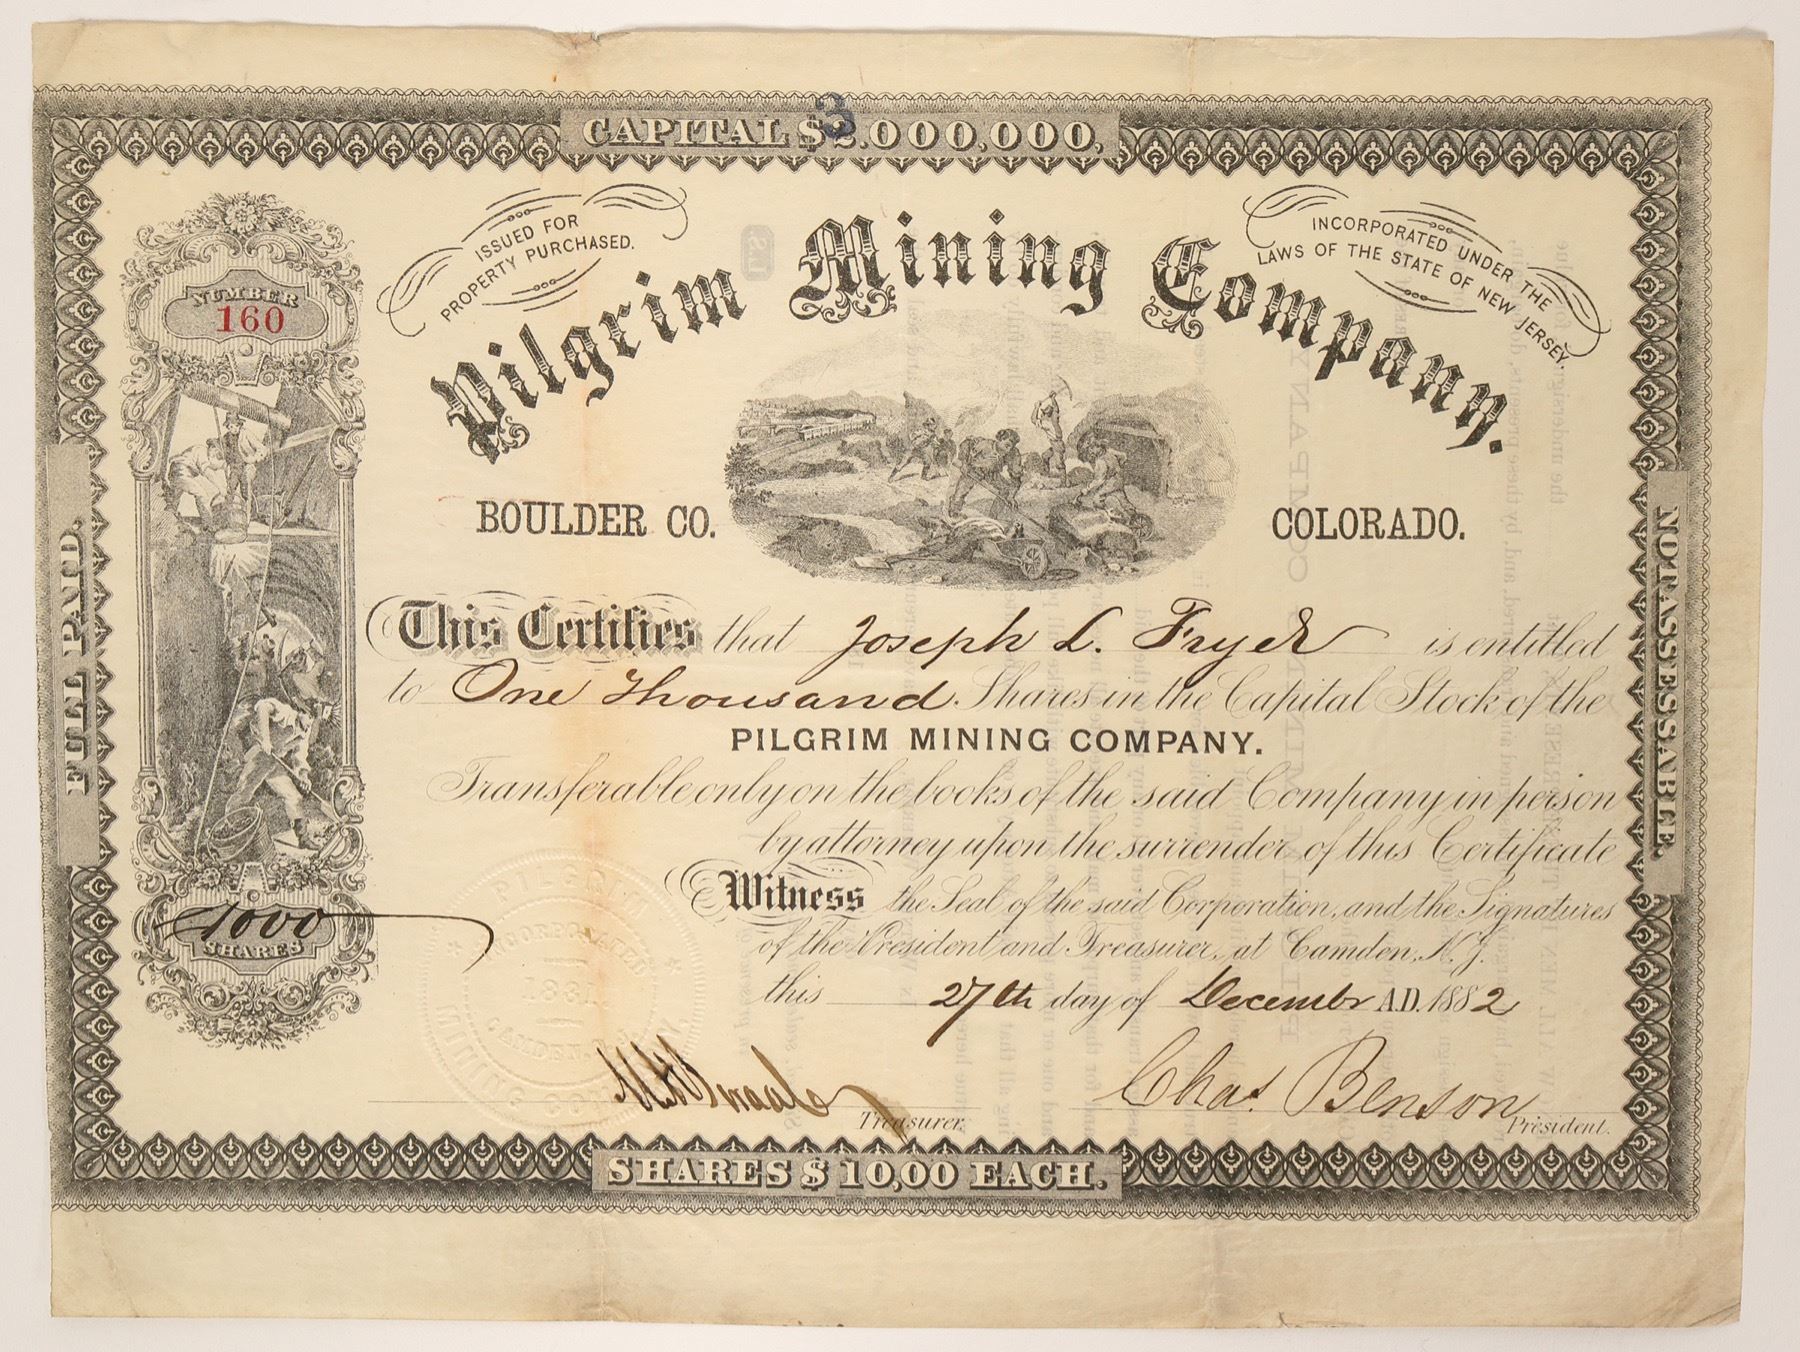 CAPITAL $3,000,000,
ISSUED FOR
PROPERTY PURCHASED.
INCORPORATED UNDER THE
LAWS OF THE STATE OF NEW JERSEY.
Pilgrim Mining Company.
NUMBER
160
BOULDER CO. COLORADO.
FULL PAID.
NOT ASSESSABLE.
This Certifies that Joseph L. Fryer is entitled
to One Thousand Shares in the Capital Stock of the
PILGRIM MINING COMPANY.
Transferable only on the books of the said Company in person
by attorney upon the surrender of this Certificate
Witness the Seal of the said Corporation, and the Signatures
of the President and Treasurer, at Camden, N.J.
this 27th day of December A.D. 1882
1000
SHARES
PILGRIM MINING CO.
INCORPORATED
1881
CAMDEN, N.J.
Treasurer.
Chas. Benson
President.
SHARES $10,00 EACH.